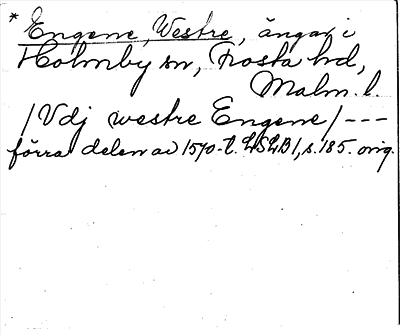 * Engene, Westre, ängar i
Holmby sn, Frosta hd,
Malm. l.
/Vdj westre Engene/ ---
förra delen av 1570-t. LSLB 1, s. 185. orig.